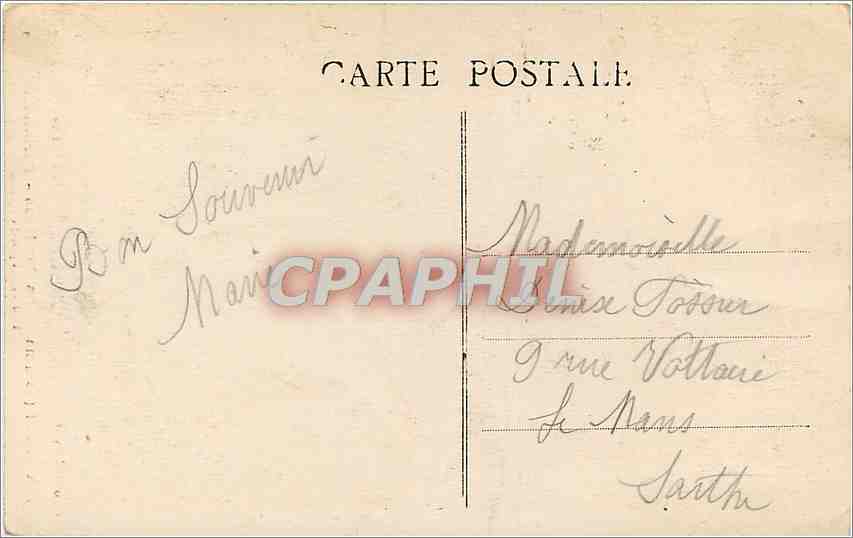 CARTE POSTALE
Bon Souvenir
Marie
CPAPHIL
Mademoiselle
Denise
9 rue Voltaire
Le Mans
Sarthe